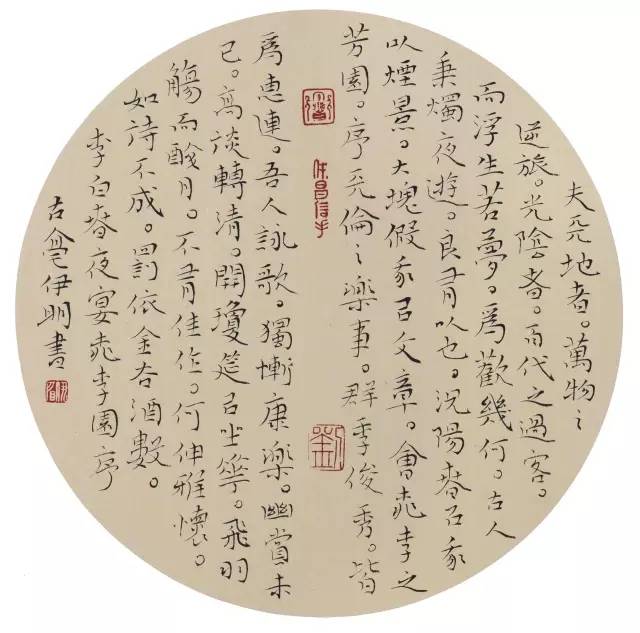 夫天地者。萬物之
逆旅。光陰者。百代之過客。
而浮生若夢。爲歡幾何。古人
秉燭夜遊。良有以也。況陽春召我
以煙景。大塊假我㠯文章。會桃李之
芳園。序天倫之樂事。群季俊秀。皆
爲惠連。吾人詠歌。獨慚康樂。幽賞未
已。高談轉清。開瓊筵㠯坐華。飛羽
觴而醉月。不有佳作。何伸雅懷。
如詩不成。罰依金谷酒數。
李白春夜宴桃李園序
古亳伊明書